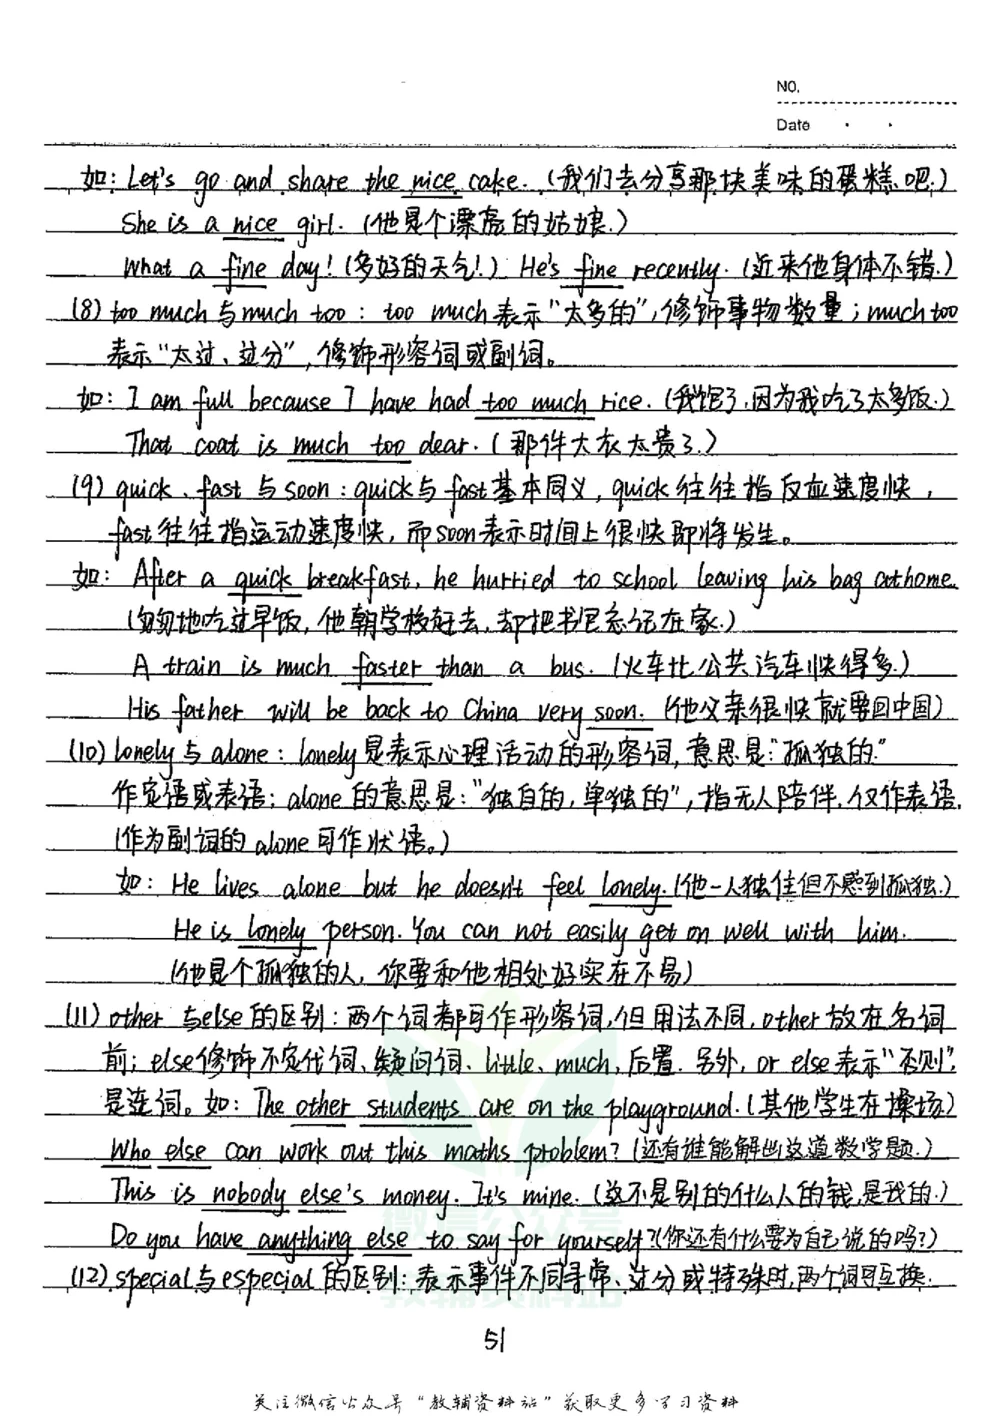 NO.
Date
如: Let's go and share the nice cake. (我们去分享那块美味的蛋糕吧.)
She is a nice girl. (他是个漂亮的姑娘.)
What a fine day! (多好的天气!) He's fine recently. (近来他身体不错.)
(8) too much与much too : too much表示“太多的”,修饰事物数量；much too
表示“太过、过分”, 修饰形容词或副词。
如: I am full because I have had too much rice. (我饱了,因为我吃了太多饭.)
That coat is much too dear. (那件大衣太贵了.)
(9) quick、fast 与 soon : quick与 fast基本同义, quick往往指反应速度快,
fast往往指运动速度快, 而soon表示时间上很快即将发生。
如: After a quick breakfast, he hurried to school leaving his bag at home.
(匆匆地吃过早饭, 他朝学校赶去, 却把书包忘记在家.)
A train is much faster than a bus. (火车比公共汽车快得多.)
His father will be back to China very soon. (他父亲很快就要回中国)
(10) lonely与alone : lonely是表示心理活动的形容词, 意思是:“孤独的”
作定语或表语; alone的意思是:“独自的, 单独的”, 指无人陪伴, 仅作表语.
(作为副词的alone可作状语。)
如: He lives alone but he doesn't feel lonely. (他一人独住但不感到孤独.)
He is lonely person. You can not easily get on well with him.
(他是个孤独的人, 你要和他相处好实在不易)
(11) other 与else的区别 : 两个词都可作形容词, 但用法不同, other放在名词
前; else修饰不定代词、疑问词、little、much, 后置. 另外, or else表示“否则”,
是连词。如: The other students are on the playground. (其他学生在操场)
Who else can work out this maths problem? (还有谁能解出这道数学题.)
This is nobody else's money. It's mine. (这不是别的什么人的钱,是我的.)
Do you have anything else to say for yourself? (你还有什么要为自己说的吗?)
(12) special与especial的区别: 表示事件不同寻常、过分或特殊时, 两个词可互换.
微信公众号
教辅资料站
51
关注微信公众号“教辅资料站”获取更多学习资料